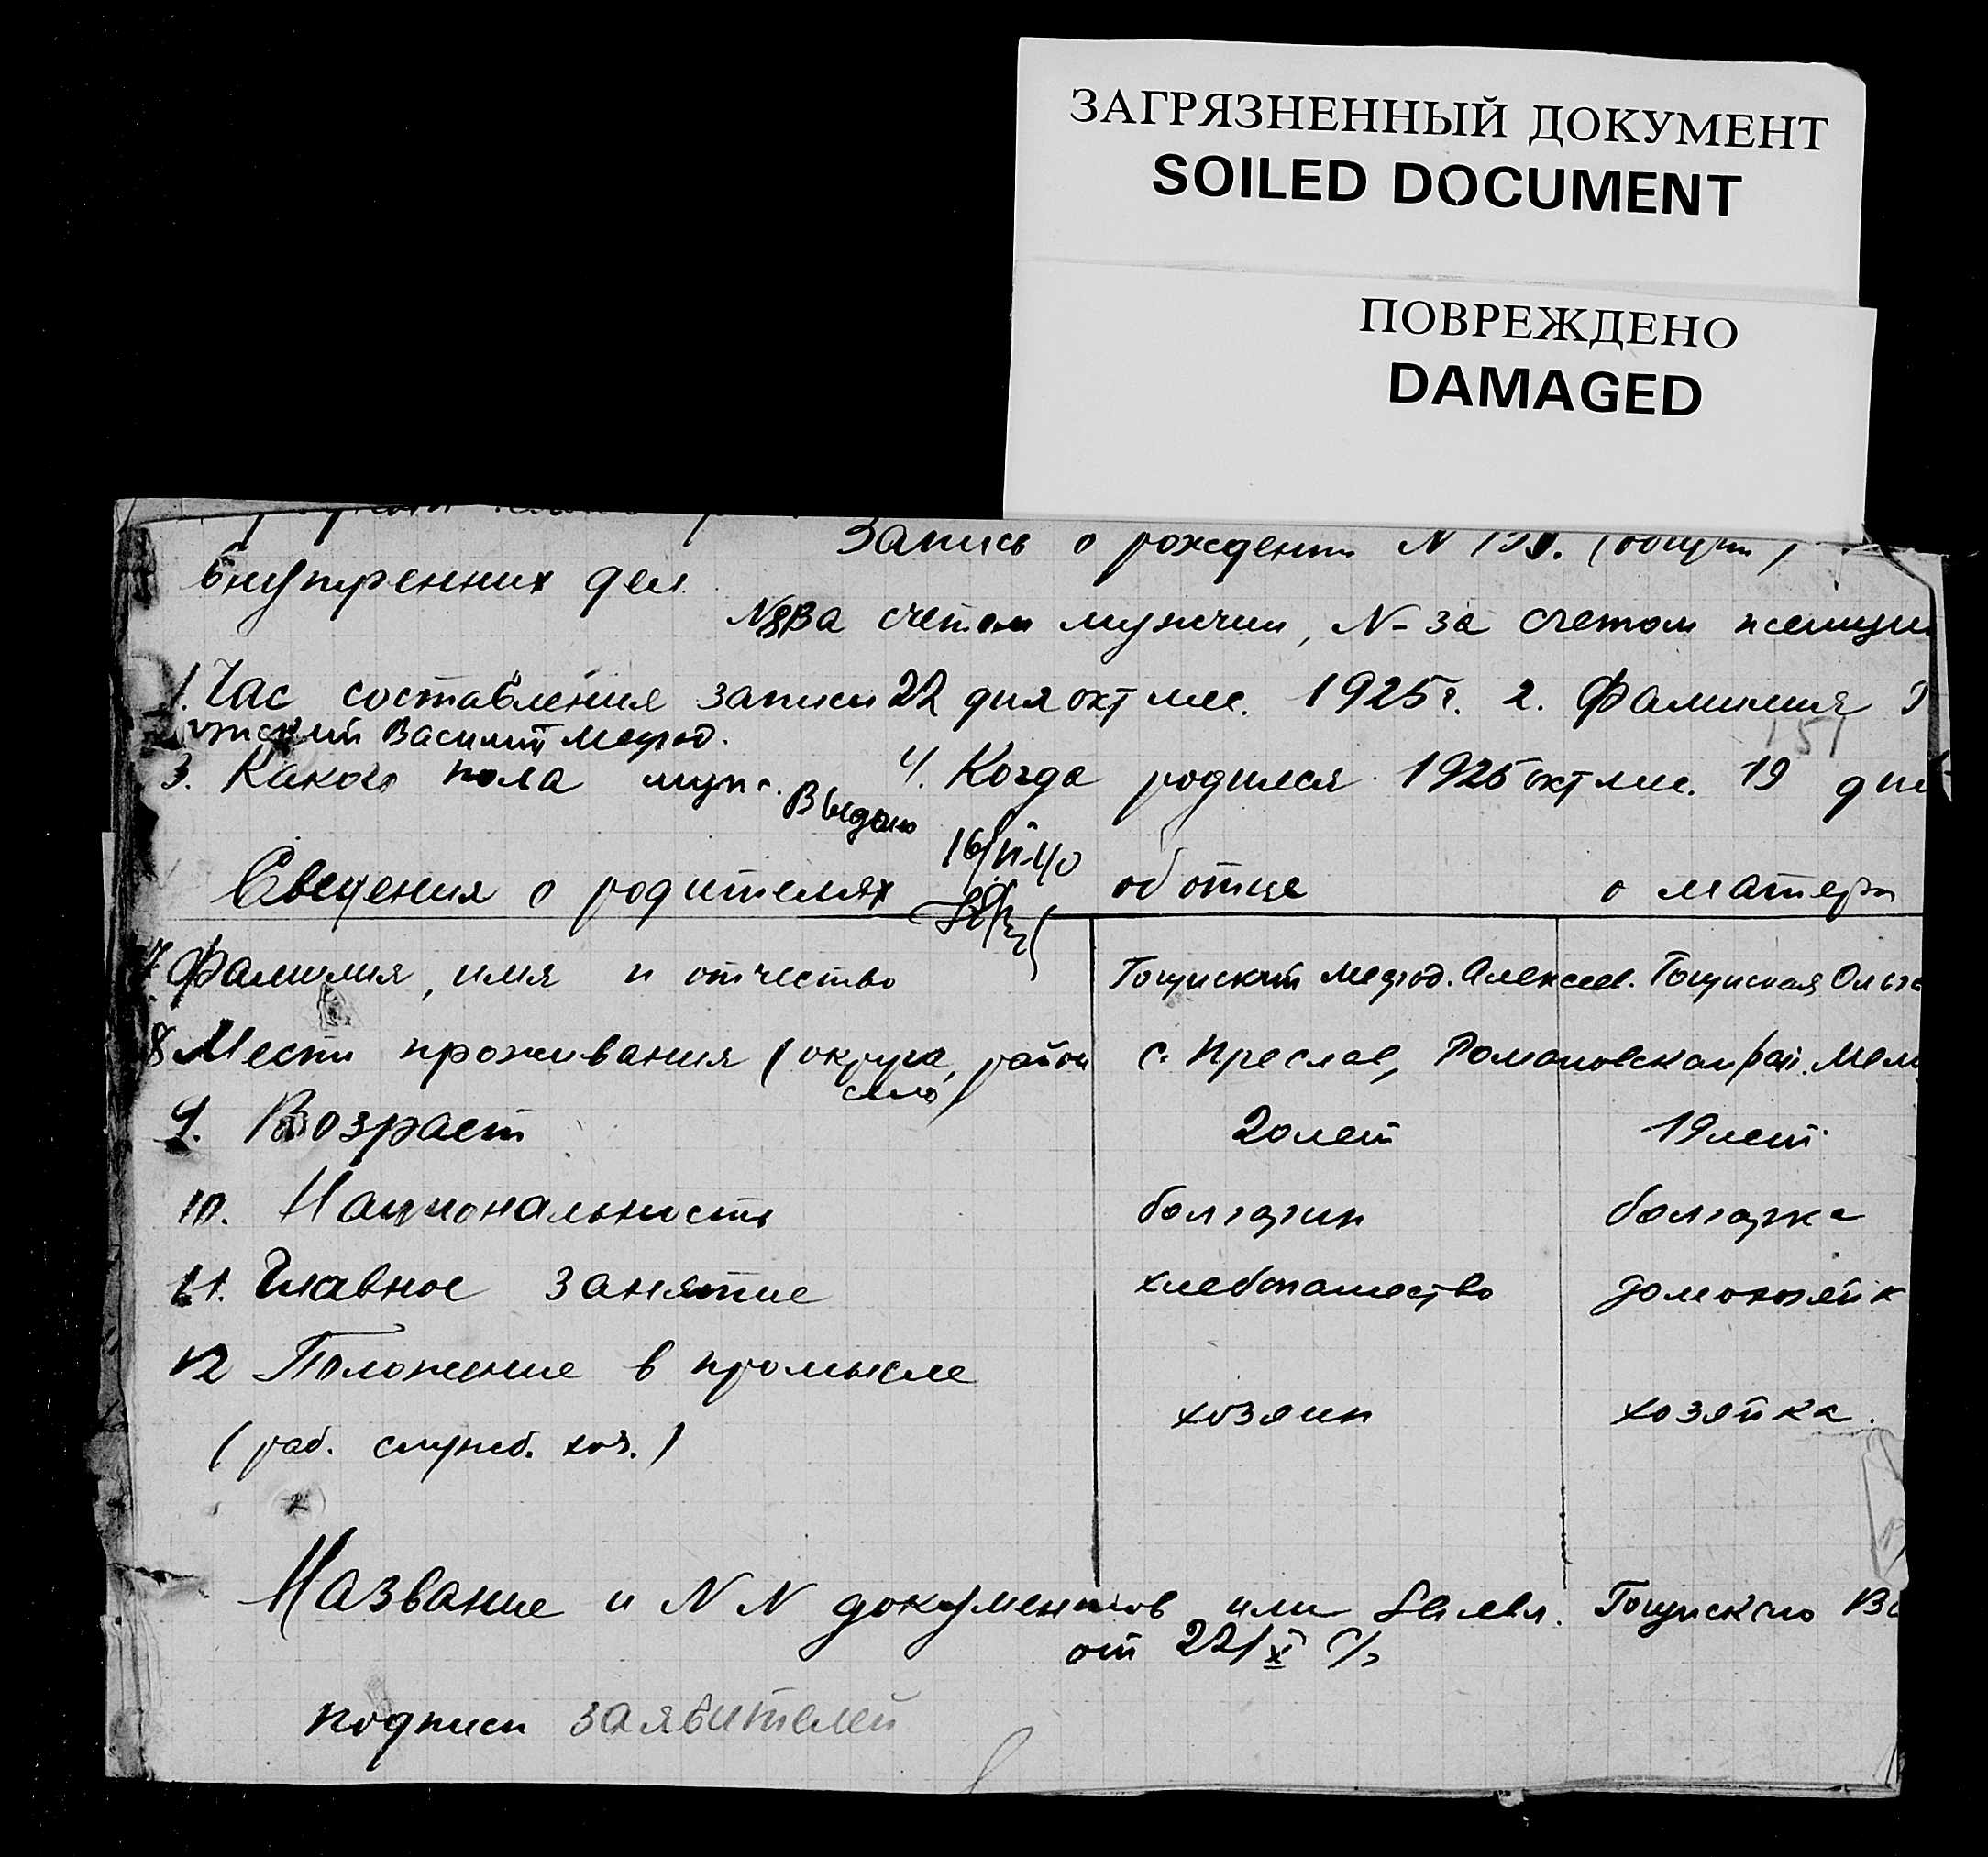 ЗАГРЯЗНЕННЫЙ ДОКУМЕНТ
SOILED DOCUMENT
ПОВРЕЖДЕНО
DAMAGED
Запись о рождении N
внутренних дел
N 88 за счетом мужчин, N - за счетом женщин
1. Час составления записи 22 дня окт мес. 1925 г. 2. Фамилия
Василий Мефод.
151
3. Какого пола муж. 4. Когда родился 1925 окт мес. 19 дня
Выдано
16/VI-40
Сведения о родителях об отце о матери
7 Фамилия, имя и отчество Гоцуский Мефод. Алексеев. Гоцуская Ольга
8 Место проживания (округа, район село) с. Преслав, Романовская рай. Мел
9. Возраст 20 лет 19 лет
10. Национальность болгарин болгарка
11. Главное занятие хлебопашество домохозяйк
12 Положение в промысле
(раб. служб. хоз.) хозяин хозяйка.
Название и NN документов или заявл. Гоцуского
от 22/X с/г
подписи заявителей